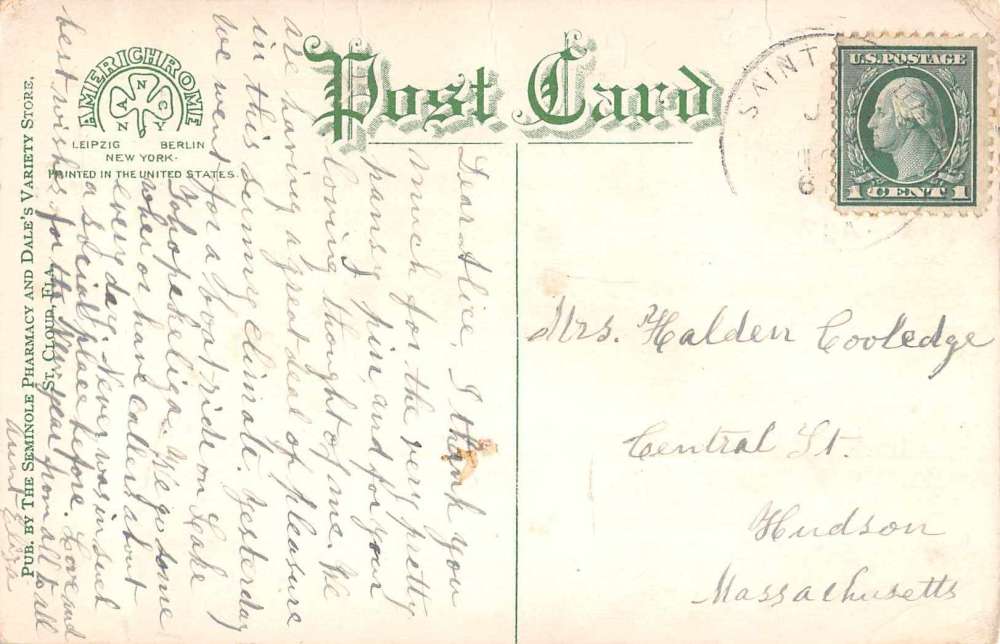 Post Card
AMERICHROME
A N C
N Y
LEIPZIG BERLIN
NEW YORK
PRINTED IN THE UNITED STATES
PUB. BY THE SEMINOLE PHARMACY AND DALE'S VARIETY STORE,
ST. CLOUD, FLA.
SAINT
6
FLA.
U.S. POSTAGE
1 CENT 1
Dear Alice, I thank you
much for the very pretty
pansy pin and for your
loving thought of me. We
are having a great deal of pleasure
in this sunny climate. Yesterday
we went for a boat ride on Lake
Tohopekaliga. We go some
where or have callers about
every day. Never was in such
a social place before. Love and
best wishes for the New year from all to all
Aunt Eliza
Mrs. Halden Cooledge
Central St.
Hudson
Massachusetts